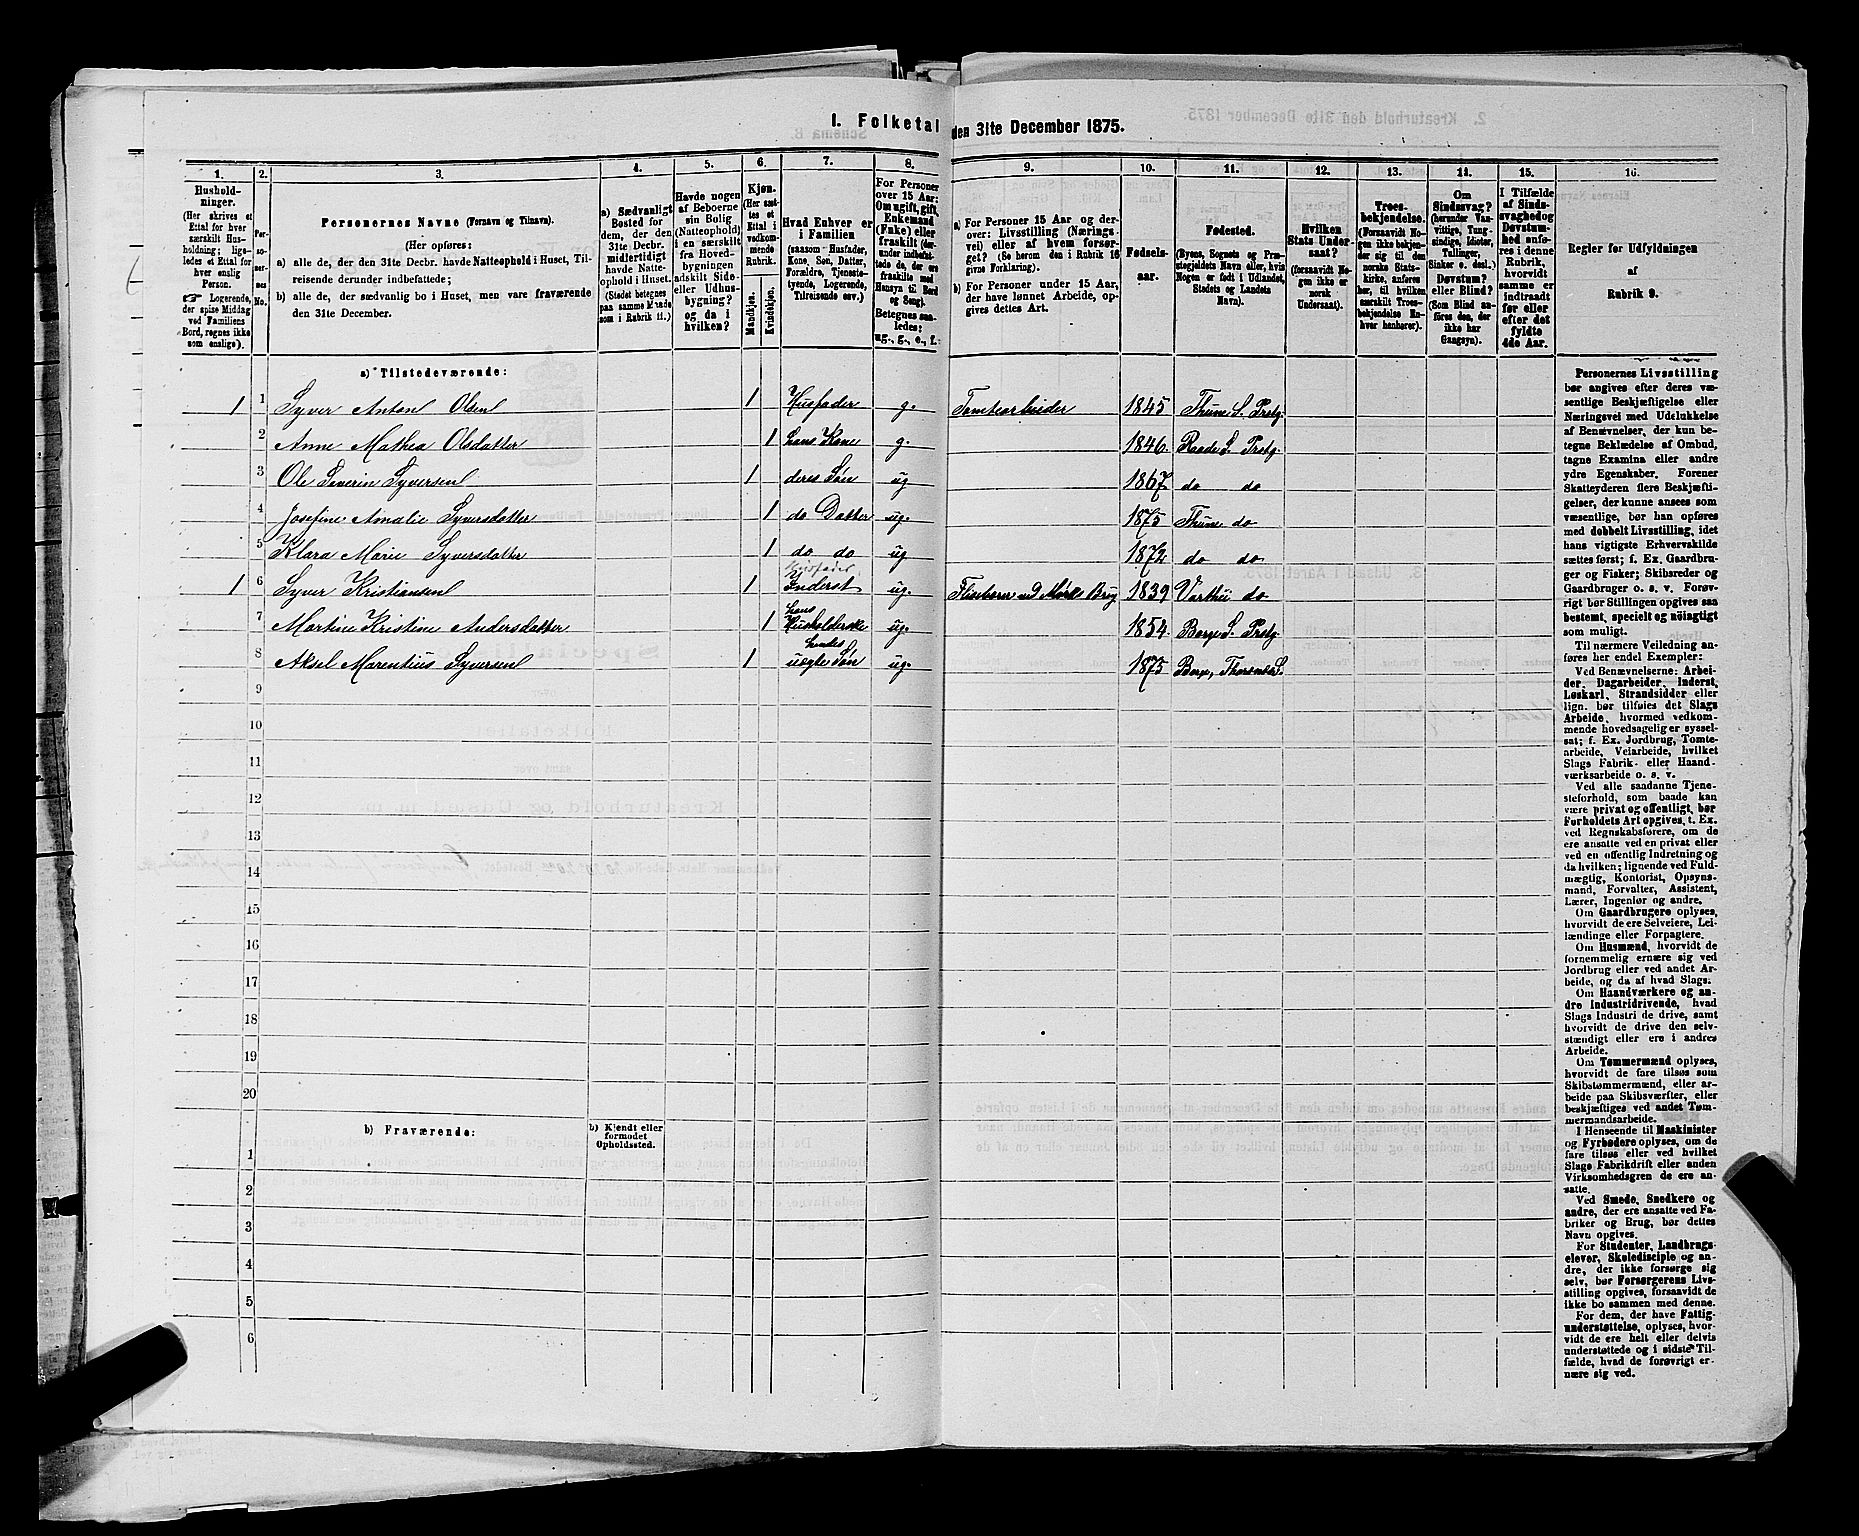 I. Folketal den 31te December 1875.
1.
2.
3.
4.
5.
6.
7.
8.
9.
10.
11.
12.
13.
14.
15.
16.
Hushold-
ninger.
(Her skrives et
Ettal for hver
særskilt Hus-
holdning; lige-
ledes et Ettal for
hver enslig
Person.
☞ Logerende,
der spise Middag
ved Familiens
Bord, regnes ikke
som enslige).
Per-
so-
ner-
nes
No.
Personernes Navne (Fornavn og Tilnavn).
(Her opføres:
a) alle de, der den 31te Decbr. havde Natteophold i Huset, Til-
reisende derunder indbefattede;
b) alle de, der sædvanlig bo i Huset, men vare fraværende
den 31te December.
a) Sædvanligt
Bosted for
dem, der den
31te Decbr.
midlertidigt
havde Natte-
ophold i Huset.
(Stedet betegnes
paa samme Maade
som i Rubrik 11.)
Havde nogen
af Beboerne
sin Bolig
(Natteophold)
i en særskilt
fra Hoved-
bygningen
adskilt Side-
eller Udhus-
bygning?
og da i
hvilken?
Kjøn.
(Her sæt-
tes et
Ettal i
vedkom-
mende
Rubrik.
Mandkjøn.
Kvindekjøn.
Hvad Enhver er
i Familien
(saasom Husfader,
Kone, Søn, Datter,
Forældre, Tjeneste-
tyende, Logerende,
Tilreisende osv.)
For Personer
over 15 Aar:
Om ugift, gift,
Enkemand
(Enke) eller
fraskilt (der-
under indbefat-
tede de, der ere
fraskilte med
Hensyn til Bord
og Seng).
Betegnes saa-
ledes:
ug., g., e., f.:
a) For Personer 15 Aar og der-
over: Livsstilling (Nærings-
vei) eller af hvem forsør-
get? (Se herom den i Rubrik 16
givne Forklaring).
b) For Personer under 15 Aar,
der have lønnet Arbeide, op-
gives dettes Art.
Fødsels-
aar.
Fødested.
(Byens, Sognets og Præ-
stegjeldets Navn eller, hvis
Nogen er født i Udlandet,
Stedets og Landets
Navn).
Hvilken
Stats Under-
saat?
(forsaavidt No-
gen ikke er
norsk
Undersaat).
Troes-
bekjendelse.
(Forsaavidt No-
gen ikke bekjen-
der sig til den
norske Stats-
kirke, anføres
her, til hvilken
særskilt Troes-
bekjendelse En-
hver henhører).
Om
Sindssvag?
(herunder Van-
vittige, Tung-
sindige, Idioter,
Tullinger,
Sinker o. desl.)
Døvstum?
eller Blind?
(Som Blind an-
føres den, der
ikke har
Gangsyn).
I Tilfælde
af Sinds-
svaghed og
Døvstum-
hed anfø-
res i denne
Rubrik,
hvorvidt
samme er
indtraadt
før eller
efter det
fyldte
4de Aar.
Regler for Udfyldningen
af
Rubrik 9.
a) Tilstedeværende:
1 1 Syver Anton Olsen 1 Husfader g. Tomtearbeider 1845 Thune S. Prstg.
2 Anne Mathea Olsdatter 1 hans Kone g. 1846. Raade S. Prstg.
3 Ole Severin Syversen 1 deres Søn ug 1867 do do
4 Josefine Amalie Syversdatter 1 do Datter ug. 1875 Thune do
5 Klara Marie Syversdatter 1 do do ug 1872 do do
Husfader,
1 6 Syver Kristiansen 1 Inderst ug. 1839 do
7 Martine Kristine Andersdatter 1 hans Husholderske ug. 1854. Borge S. Prstg.
8 Aksel Marentius Syversen 1 hendes uægte Søn ug. 1875 Borge,
9
10
11
12
13
14
15
16
17
18
19
20
b) Fraværende:
b) Kjendt eller
formodet
Opholdssted.
1
2
3
4
5
6
Personernes Livsstilling
bør angives efter deres væ-
sentlige Beskjæftigelse eller
Næringsvei med Udelukkelse
af Benævnelser, der kun be-
tegne Beklædelse af Ombud,
tagne Examina eller andre
ydre Egenskaber. Forener
Skatteyderen flere Beskjæfti-
gelser, der kunne ansees som
væsentlige, bør han opføres
med dobbelt Livsstilling, idet
hans vigtigste Erhvervskilde
sættes først; f. Ex. Gaardbru-
ger og Fisker; Skibsreder og
Gaardbruger o. s. v. Forøv-
rigt bør Stillingen opgives saa
bestemt, specielt og nøiagtigt
som muligt.
Til nærmere Veiledning an-
føres her endel Exempler:
Ved Benævnelserne: Arbei-
der, Dagarbeider, Inderst,
Løskarl, Strandsidder eller
lign. bør tilføies det Slags
Arbeide, hvormed vedkom-
mende hovedsagelig er syssel-
sat; f. Ex. Jordbrug, Tomte-
arbeide, Veiarbeide, hvilket
Slags Fabrik- eller Haand-
værksarbeide o. s. v.
Ved alle saadanne Tjene-
steforhold, som baade kan
være privat og offentligt, bør
Forholdets Art opgives, t. Ex.
ved Regnskabsførere, om de
ere ansatte ved en privat eller
ved en offentlig Indretning og
da hvilken; lignende ved Fuld-
mægtig, Kontorist, Opsyns-
mand, Forvalter, Assistent,
Lærer, Ingeniør og andre.
Om Gaardbrugere oplyses,
hvorvidt de ere Selveiere, Lei-
lændinge eller Forpagtere.
Om Husmænd, hvorvidt de
fornemmelig ernære sig ved
Jordbrug eller ved andet Ar-
beide, og da af hvad Slags.
Om Haandværkere og an-
dre Industridrivende, hvad
Slags Industri de drive, samt
hvorvidt de drive den selv-
stændigt eller ere i andres
Arbeide.
Om Tømmermænd oplyses,
hvorvidt de fare tilsøs som
Skibstømmermænd, eller ar-
beide paa Skibsværfter, eller
beskjæftiges ved andet Tøm-
mermandsarbeide.
I Henseende til Maskinister
og Fyrbødere oplyses, om de
fare tilsøs eller ved hvilket
Slags Fabrikdrift eller anden
Virksomhedsgren de ere an-
satte.
Ved Smede, Snedkere og
andre, der ere ansatte ved Fa-
briker og Brug, bør dettes
Navn opgives.
For Studenter, Landbrugs-
elever, Skoledisciple og an-
dre, der ikke forsørge sig
selv, bør Forsørgerens Livs-
stilling opgives, forsaavidt de
ikke bo sammen med denne.
For dem, der have Fattig-
understøttelse, oplyses, hvor-
vidt de ere helt eller delvis
understøttede og i sidste Til-
fælde, hvad de forøvrigt er-
nære sig ved.